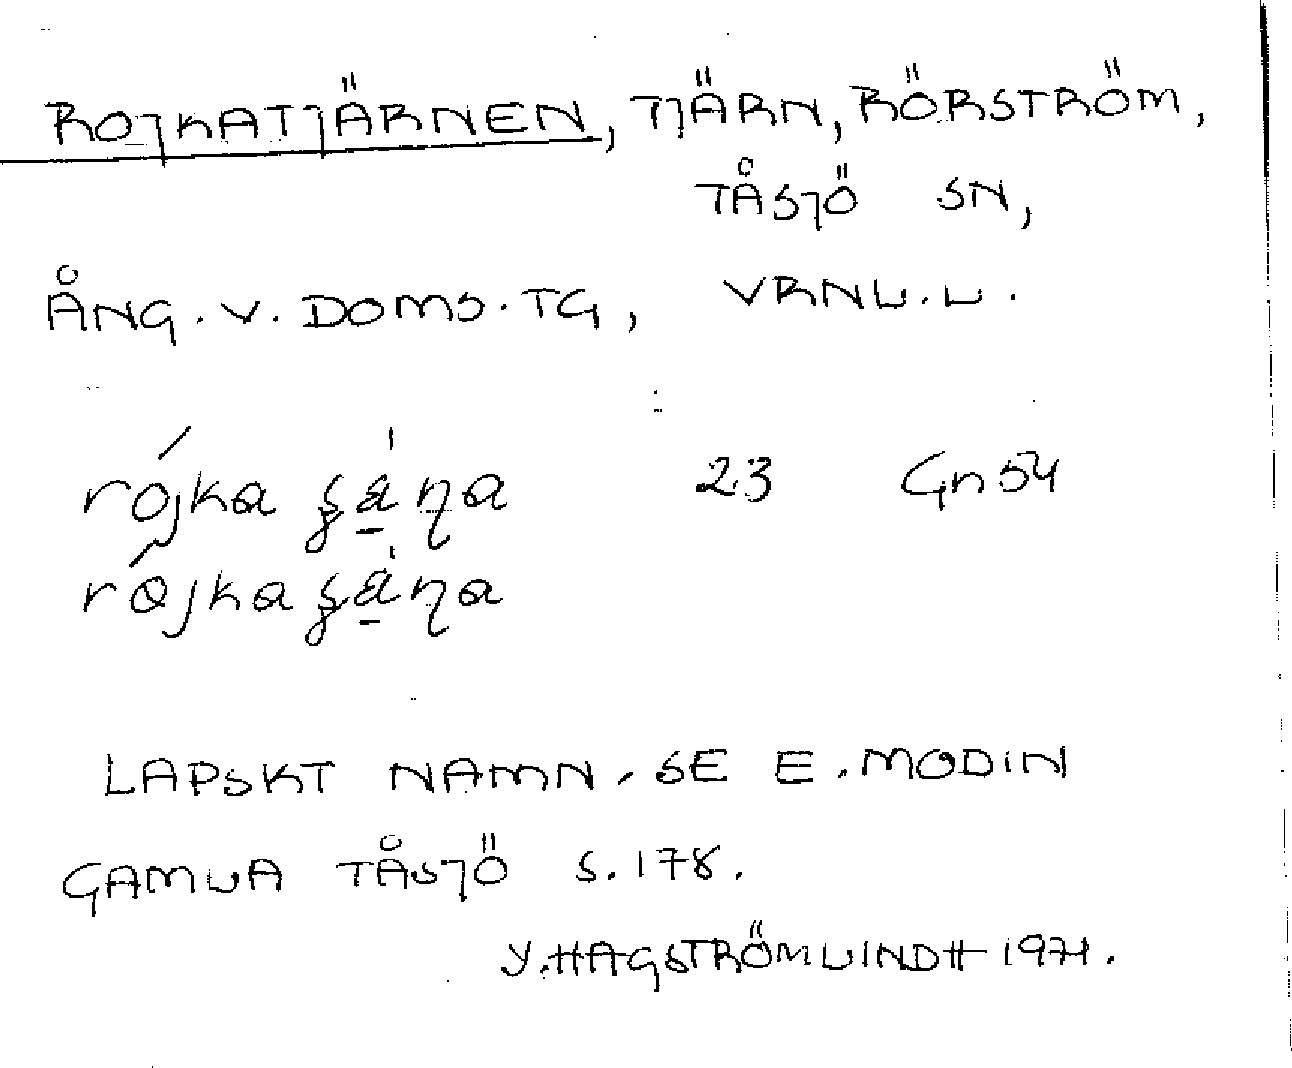 ROJKATJÄRNEN, TJÄRN, RÖRSTRÖM,
TÅSJÖ SN,
ÅNG. V. DOMS. TG, VRNL. L.
rójka 23 Gn 54
LAPSKT NAMN. SE E. MODIN
GAMLA TÅSJÖ S. 178.
Y. HAGSTRÖM LINDH 1971.